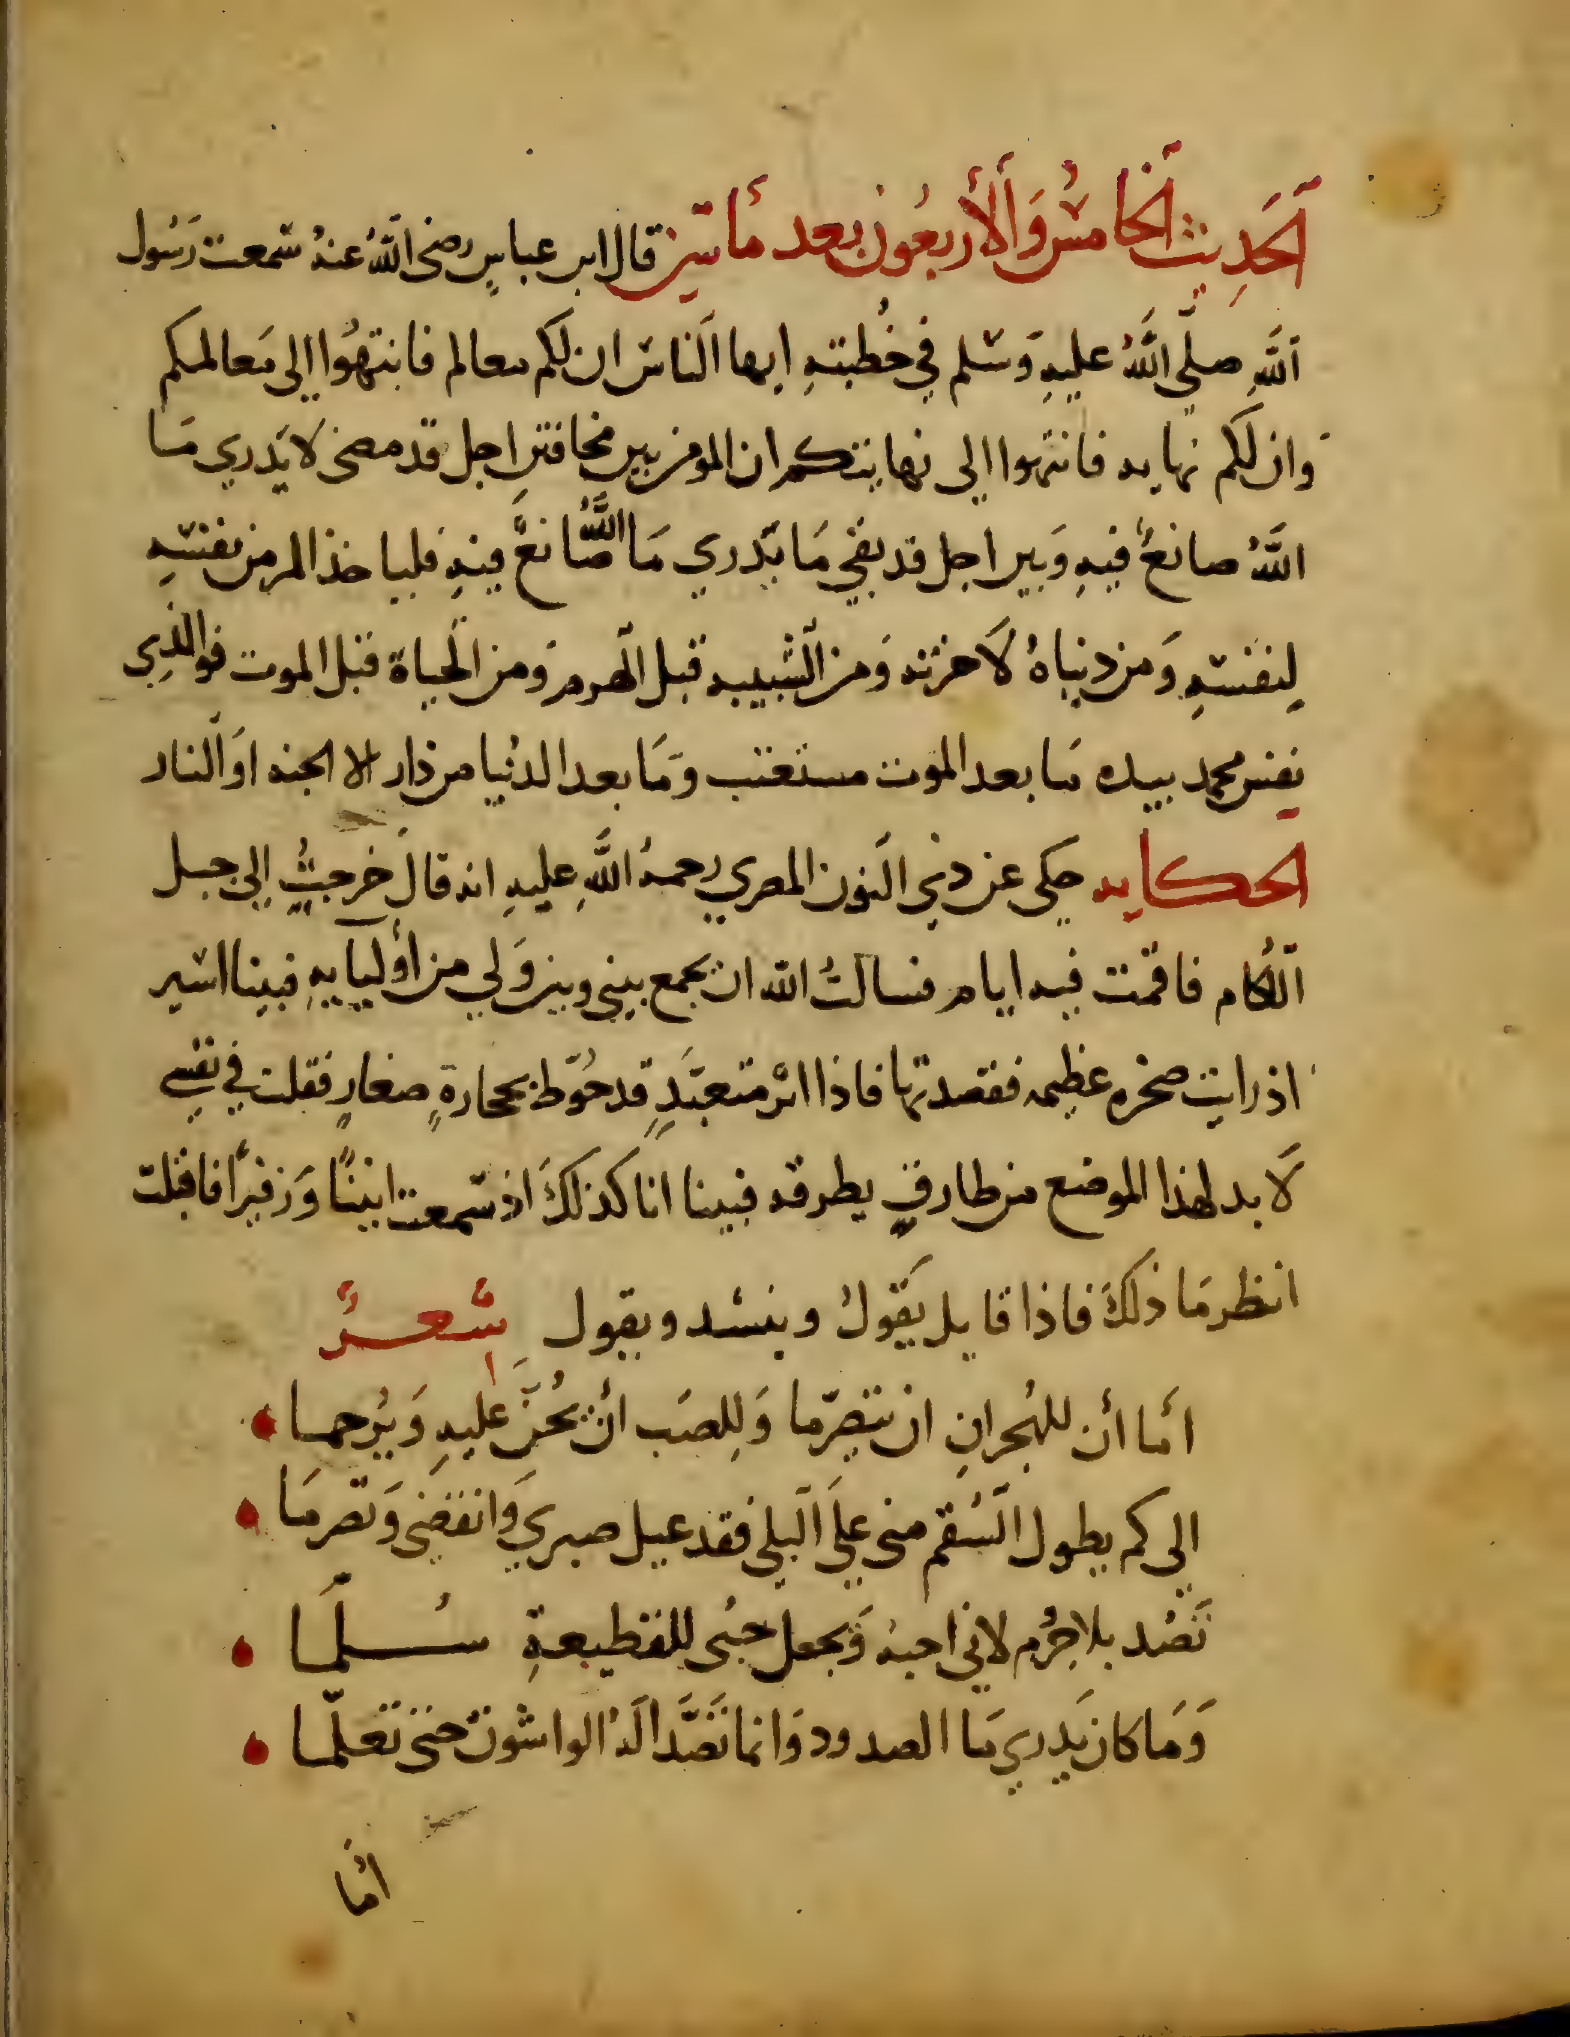 الحَدِيث الخامسُ وَالأربعُون بعد مأتين قال ابن عباسٍ رضى اللهُ عنهُ سمعت رَسُول
اللَّهِ صلّى اللَّهُ عليهِ وَسلم في خُطبتهِ ايها الناس ان لكم معالم فانتهُوا الى معالمكم
وان لكم نهايه فانتهوا الى نهايتكم ان المومن بين مخافتين اجل قد مضى لا يَدري مَا
اللَّهُ صانعٌ فيهِ وَبين اجل قد بقي مَا يَدري مَا اللَّهُ صَانعٌ فيهِ فلياخذ المر من نفسهِ
لِنفسهِ وَمن دنياهُ لاَخرته وَمن الشبيبه قبل الهرم وَمن الحياة قبل الموت فوالذِي
نفس محمد بيده مَا بعد الموت مستعتب وَمَا بعد الدنُيا من دار الا الجنه اوَ النار
الحكايه حكى عن ذي النون المصري رحمهُ اللَّهِ عليهِ انه قالَ خرجتُ إلى جبل
اللُكام فاقمت فيه ايام فسالتُ الله ان يجمع بيني وبين وَلي من أوليايهِ فبينا اسير
اذ رايت صخره عظيمه فقصدتها فاذا اثر متعبَّدٍ قد حُوّط بحجارةٍ صغارٍ فقلت في نفسي
لاَ بد لهذا الموضع من طارقٍ يطرقه فبينا انا كذلكَ اذ سمعت انينًا وَزفيرًا فاقبلت
انظر مَا ذلكَ فاذا قايل يَقولُ وينشد ويقول شعرً
أما أن للهُجرانِ ان يتصرّما وَلِلصَب انْ يُحنَّ عليهِ وَيُرحمَا
الى كم يطول السُقم منى علىَ البلى فقد عيل صبري وَانقضى وَتصرمَا
تَصُد بلا جرُم لاني احبهُ وَيجعل حبُى للقطيعةِ سُلَّمَا
وَمَا كان يَدري مَا الصدود وَانما تَصَّدا لهُ الواشون حتى تَعلّمَا
امُا